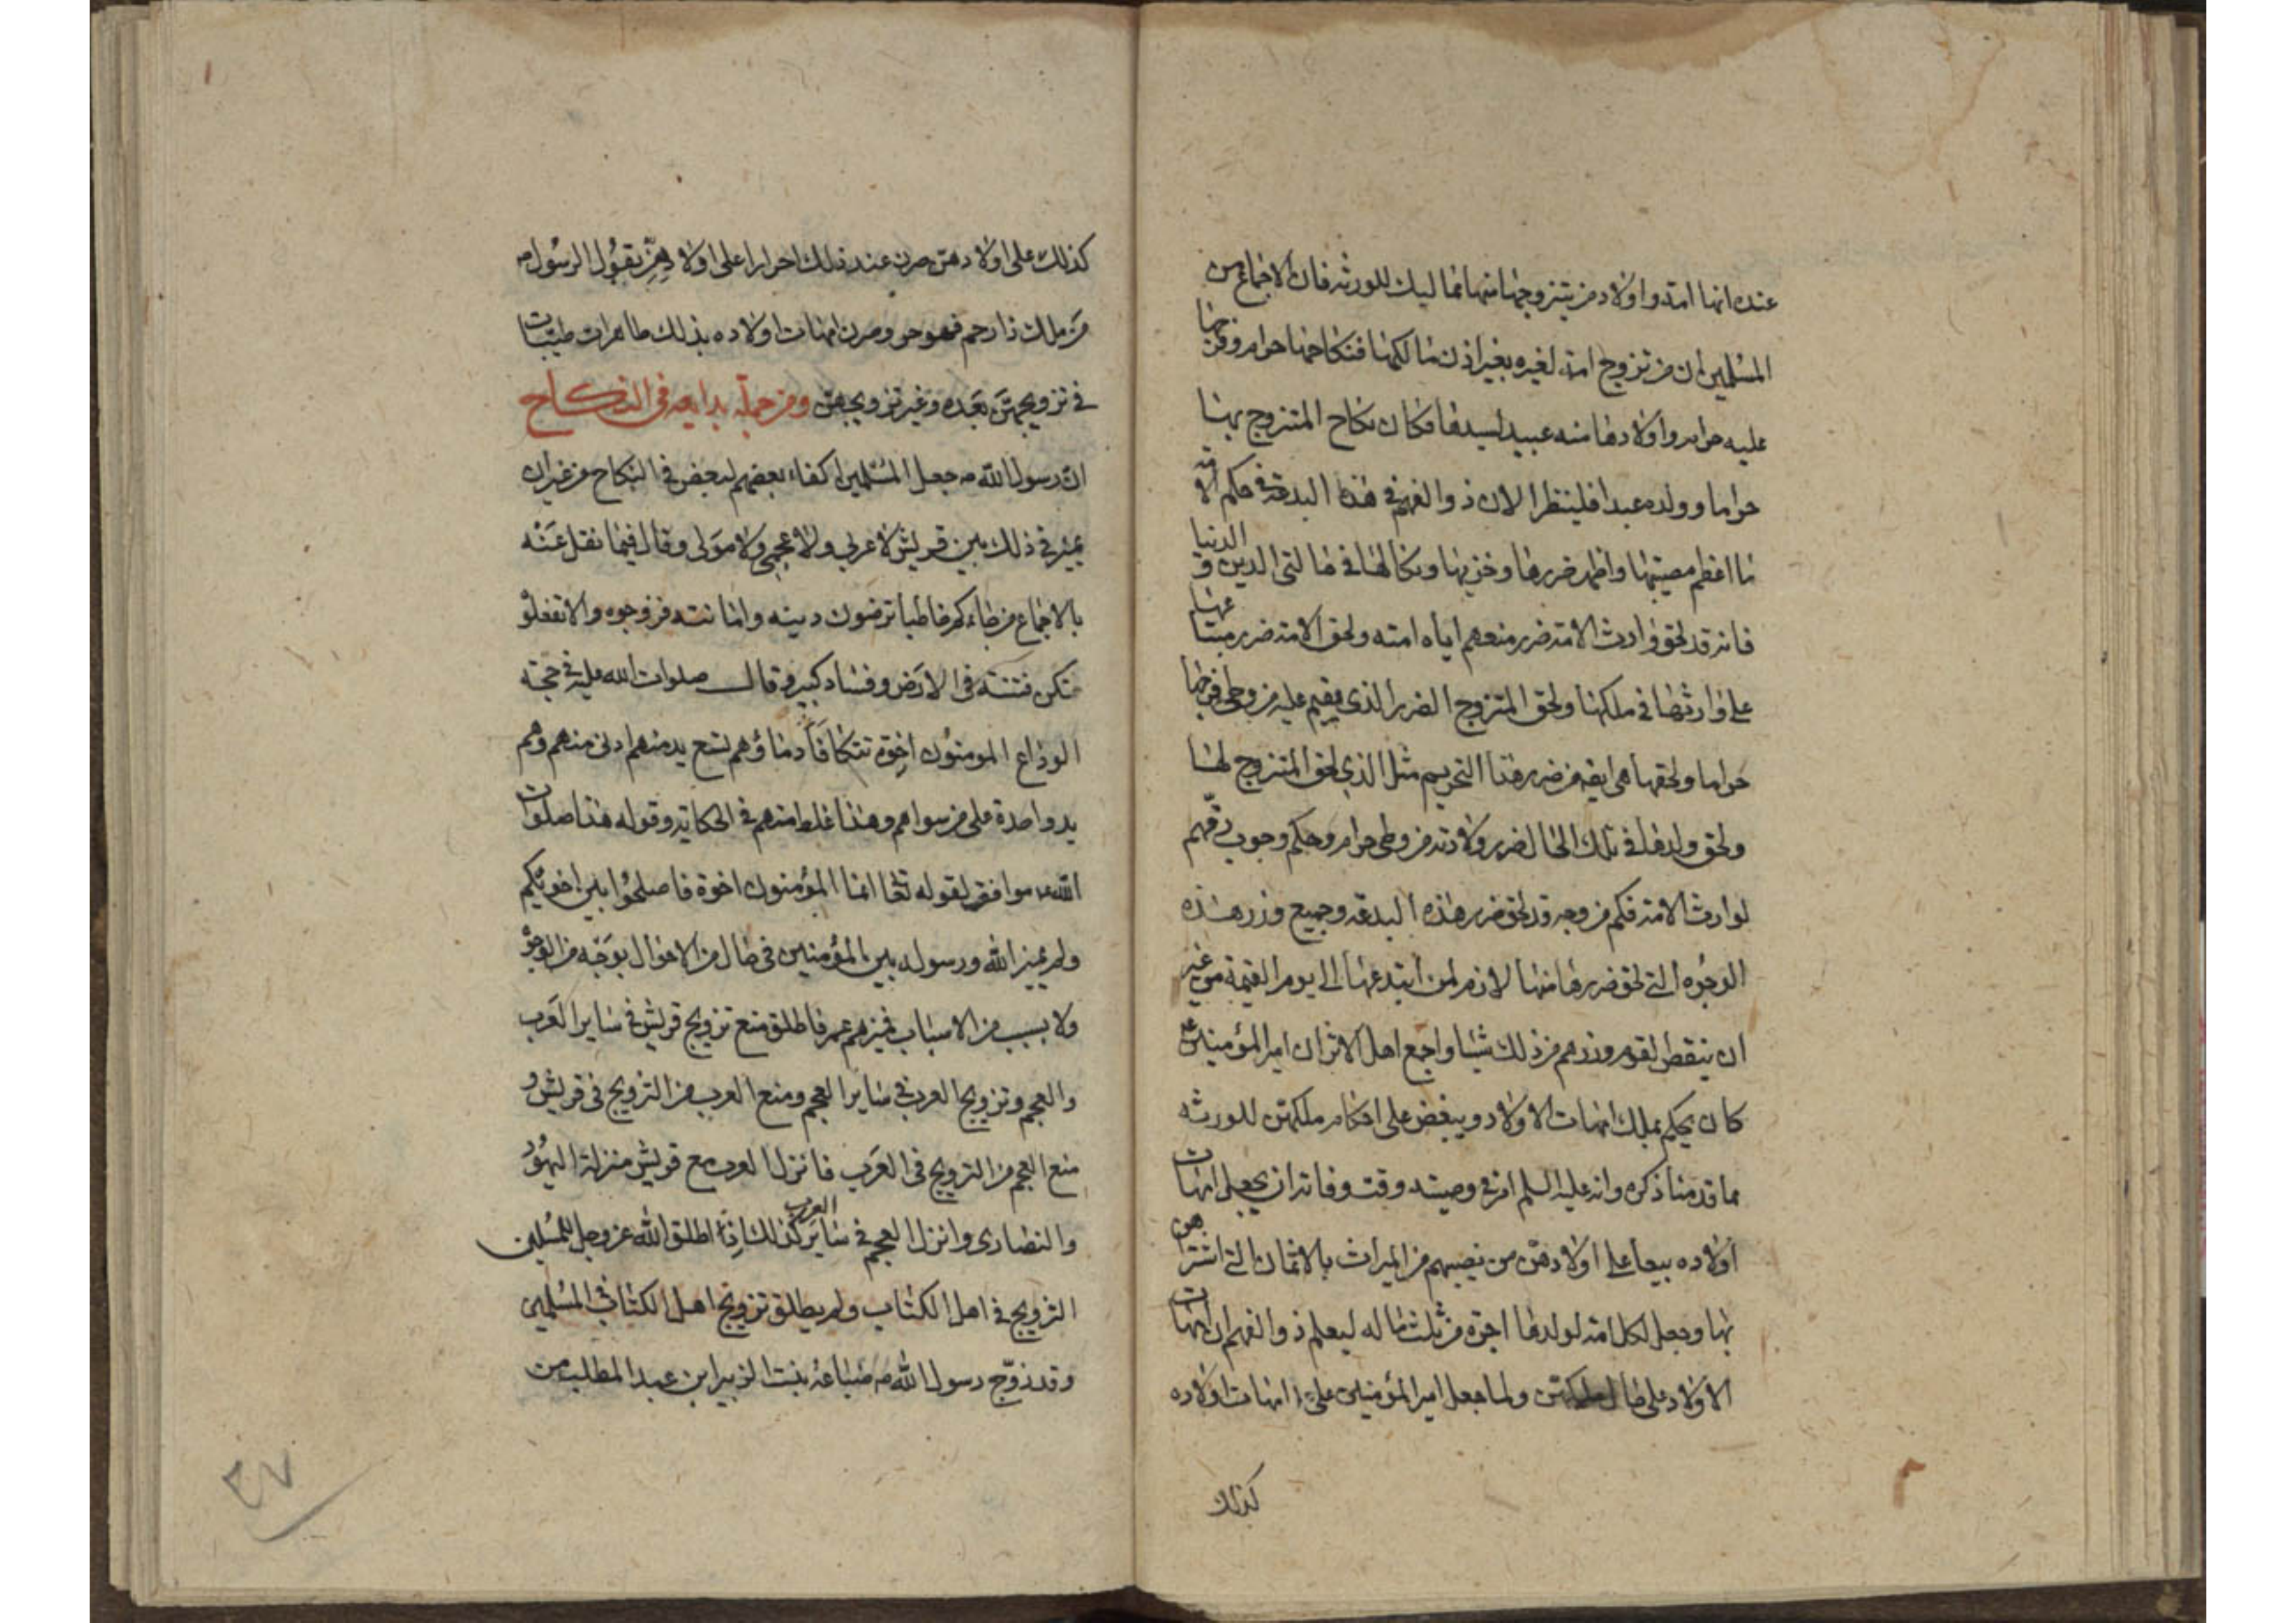 عنده انها امة واولاد من يتزوجها منها مماليك للورثة فان الاجماع من
المسلمين ان من تزوج امة لغيره بغير اذن مالكها فنكاحها حرام وفرجها
عليه حرام واولادها منه عبيد لسيدها فكان نكاح المتزوج بها
حراما وولده عبدا فلينظر الان ذوالفهم في هذه البدعة في حكم الامة
ما اعظم مصيبتها واظهر ضررها وخزيها ونكالها في حالتي الدين والدنيا
فانه قد لحق وارث الامة ضرر منعهم اياه امته ولحق الامة ضرر مبتاعها
على وارثها في ملكها ولحق المتزوج الضرر الذي يقيم عليه من وطى فرجها
حراما ولحقها هي ايضا من ضرر هذا التحريم مثل الذي لحق المتزوج لها
ولحق ولدها في تلك الحال ضرر ولادته من وطى حرام وحكم وجوب رقهم
لوارث الامة فكم من وجه قد لحق ضرر هذه البدعة وجميع وزر هذه
الوجوه التي لحق ضررها منها لازم لمن ابتدعها الى يوم القيمة من غير
ان ينقطع لقوم وزرهم من ذلك شيئا واجمع اهل الاثر ان امير المؤمنين ع
كان يحكم بملك امهات الاولاد ويبغض على احكام ملكهن للورثه
مما قدمنا ذكره وانه عليه السلم امر في وصيته وقت وفاته ان يجعل امهات
اولاده بيعا على اولادهن من نصيبهم من الميراث بالاثمان التي اشتراهن
بها وجعل لكل امة لولدها اجرة من ثلث ماله ليعلم ذوالفهم ان امهات
الاولاد على حال ولما جعل امير المؤمنين على ع امهات اولاده
كذلك
كذلك على اولادهن صرن عند ذلك احرارا على اولادهن بقول الرسول ص
من ملك ذا رحم فهو حر وصرن امهات اولاده بذلك طاهرات طيبات
في تزويجهن بعده وغير تزويجهن ومن جملة بدايعه في النكاح
ان رسول الله ص جعل المسلمين اكفاء بعضهم لبعض في النكاح من غير ان
يميز في ذلك بين قريش لا عربي ولا عجمي ولا مولى وقال فيما نقل عنه
بالاجماع من جاءكم خاطبا ترضون دينه وامانته فزوجوه والا تفعلو
تكن فتنة في الارض وفساد كبير وقال صلوات الله عليه في حجته
الوداع المومنون اخوة تتكافأ دماؤهم يسع يدمنهم ادنى منهم وهم
يد واحدة على من سواهم وهذا غلط منهم في الحكاية وقوله هذا صلوات
الله ع موافق لقوله تعا انما المؤمنون اخوة فاصلحوا بين اخويكم
ولم يميز الله ورسوله بين المؤمنين في حال من الاحوال بوجه من الوجوه
ولا بسبب من الاسباب فميزهم عمر فاطلق منع تزويج قريش في ساير العرب
والعجم وتزويج العرب في ساير العجم ومنع العرب من التزويج في قريش و
منع العجم من التزويج في العرب فانزل العرب مع قريش منزلة اليهود
والنصارى وانزل العجم في ساير العرب كذلك اذا اطلق الله عز وجل للمسلمين
التزويج في اهل الكتاب ولم يطلق تزويج اهل الكتاب في المسلمين
وقد زوج رسول الله ص ضباعة بنت الزبير ابن عبد المطلب من
٣٧